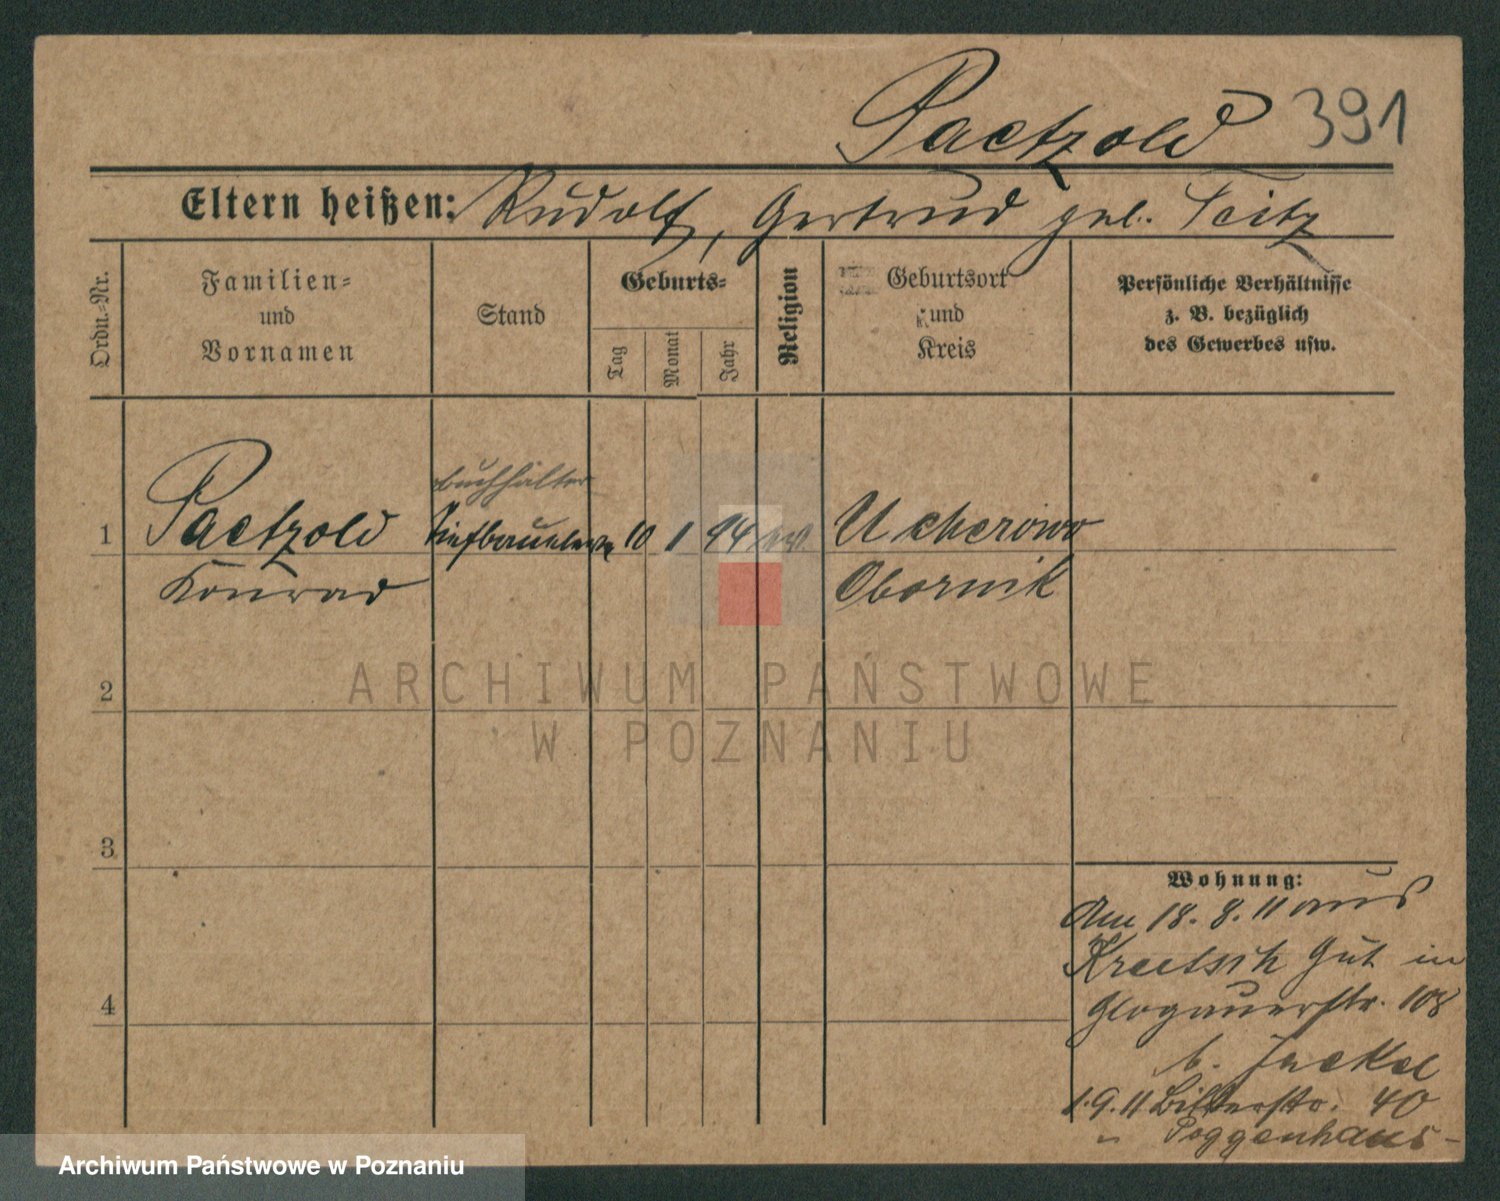 Paetzold 391
Eltern heißen: Rudolf, Gertrud geb. Teitz
Ordn.-Nr.
Familien-
und
Vornamen
Stand
Geburts-
Tag
Monat
Jahr
Religion
Geburtsort
und
Kreis
Persönliche Verhältnisse
z. B. bezüglich
des Gewerbes usw.
Buchhalter
1 Paetzold 10 1 94 ev. Ucherowo
Konrad Obornik
2
ARCHIWUM PAŃSTWOWE
W POZNANIU
3
Wohnung:
Am 18. 8. 11 aus
Gut in
4
Glogauerstr. 108
b. Jaekel
1.9.11 40
Poggenhaus-
Archiwum Państwowe w Poznaniu